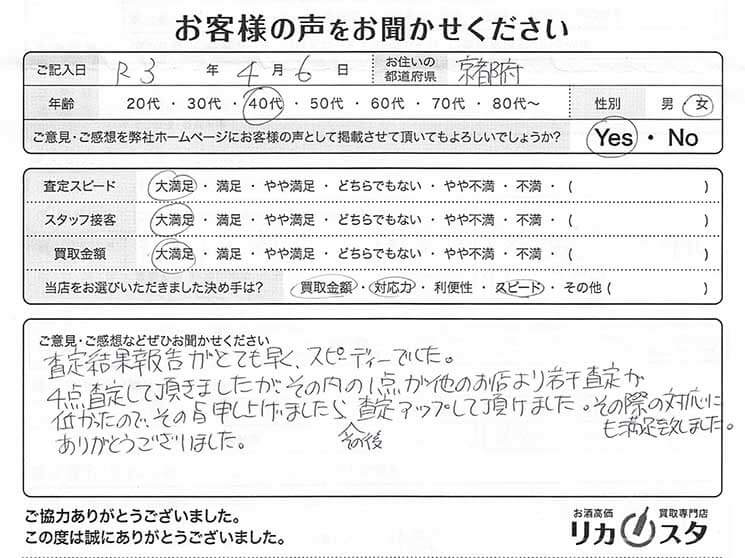 お客様の声をお聞かせください
ご記入日 R3 年 4 月 6 日 お住いの都道府県 京都府
年齢 20代・30代・40代・50代・60代・70代・80代〜 性別 男・女
ご意見・ご感想を弊社ホームページにお客様の声として掲載させて頂いてもよろしいでしょうか? Yes・No
査定スピード 大満足・満足・やや満足・どちらでもない・やや不満・不満・( )
スタッフ接客 大満足・満足・やや満足・どちらでもない・やや不満・不満・( )
買取金額 大満足・満足・やや満足・どちらでもない・やや不満・不満・( )
当店をお選びいただきました決め手は? 買取金額・対応力・利便性・スピード・その他( )
ご意見・ご感想などぜひお聞かせください
査定結果報告がとても早く、スピーディーでした。
4点査定して頂きましたがその内の1点が他のお店より若干査定が
低かったので、その旨申し上げましたらその後査定アップして頂けました。その際の対応に
も満足致しました。
ありがとうございました。
ご協力ありがとうございました。
この度は誠にありがとうございました。
お酒高価買取専門店
リカスタ